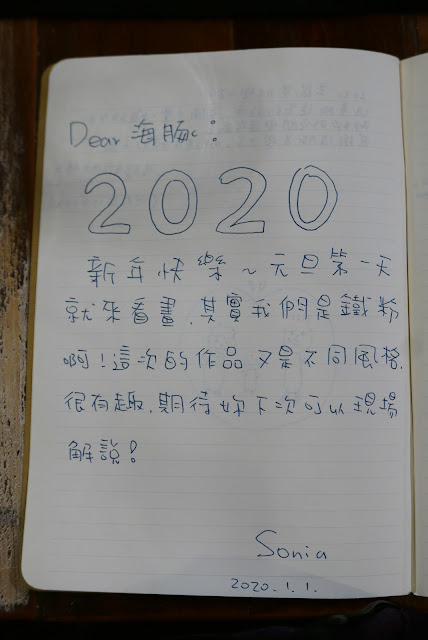 Dear 海豚:
2020
新年快樂~元旦第一天
就來看畫,其實我們是鐵粉
啊!這次的作品又是不同風格,
很有趣,期待妳下次可以現場
解說!
Sonia
2020.1.1.